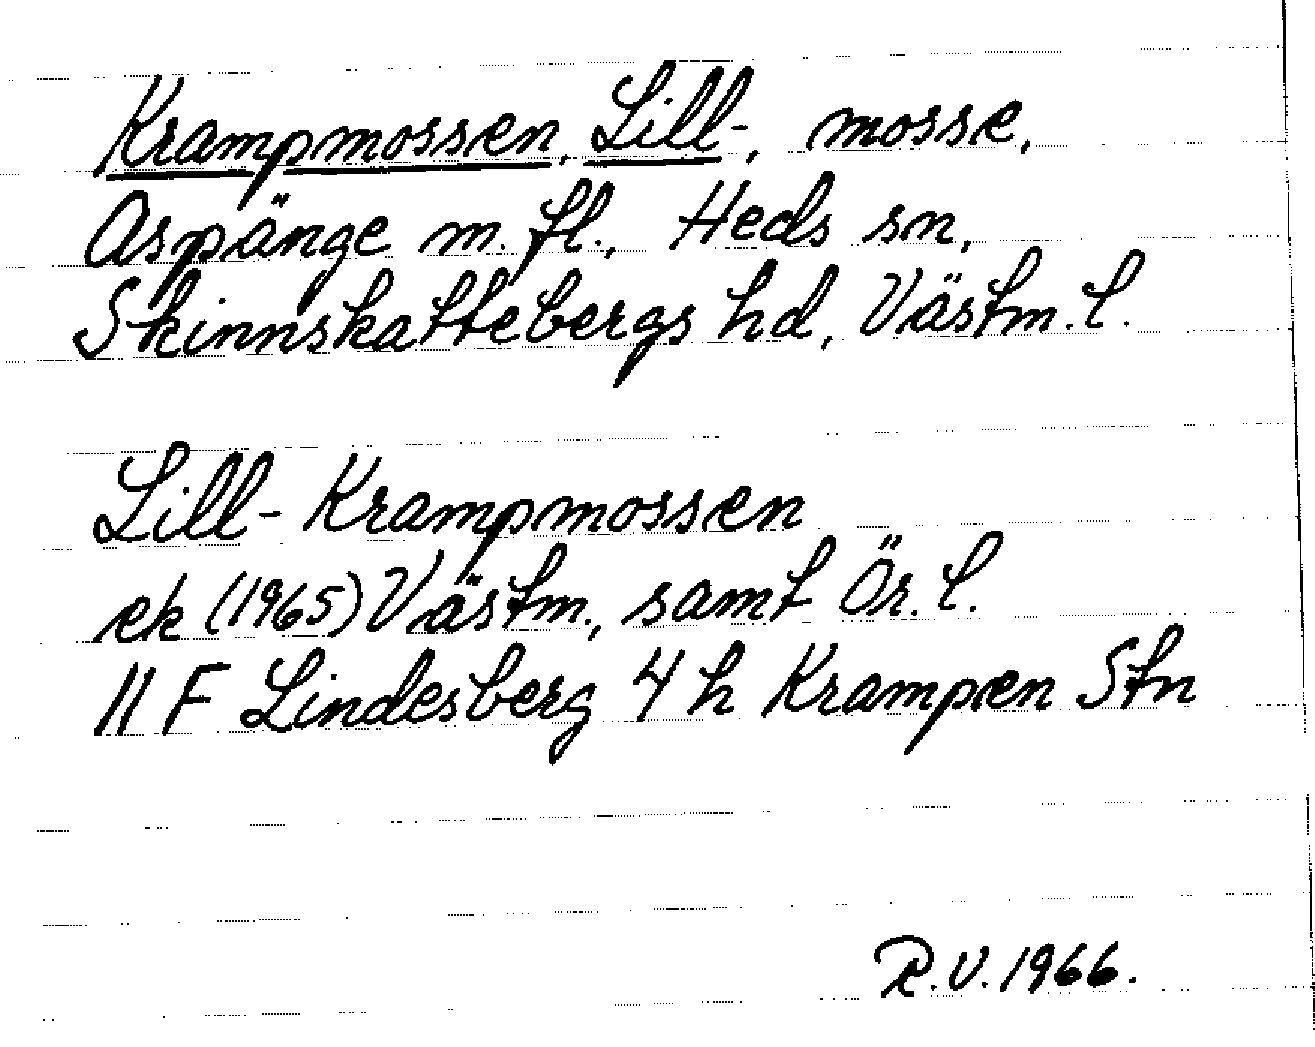 Krampmossen, Lill-, mosse,
Aspänge m. fl., Heds sn,
Skinnskattebergs hd, Västm. l.
Lill-Krampmossen
ek (1965) Västm., samt Ör. l.
11 F Lindesberg 4 h Krampen Stn
R.V. 1966.